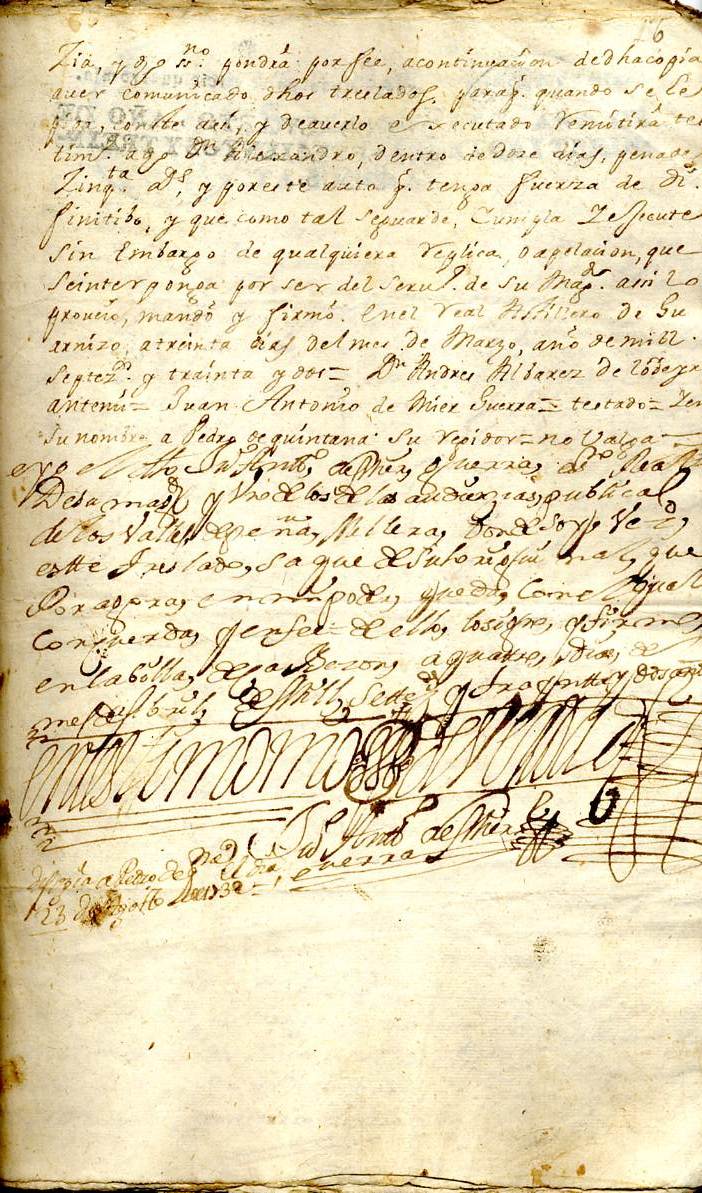 26
Zia, y dho ss.no pondrá por fee, a continuacion de dha copia
aver comunicado dhos treslados, para q. quando se le
pida, conste asi, y de averlo executado Remitirá tes
tim.o a go Dn Alexandro, dentro de doze dias, pena de
Zinq.ta ds, y por este auto q. tenga fuerza de Di
finitibo, y que como tal se guarde, Cumpla Y execute
sin Embargo de qualquiera replica, o apelacion, que
se interponga por ser del seru.o de su Mag.d asi lo
proueio, mandó y firmó. En el Real Astillero de Gu
arnizo, a treinta dias del mes de Marzo, año de mill
Septez.s y trainta y dos = Dn Andres Albarez de
antemi = Juan Antonio de Mier Guerra = testado = Zen
su nombre a Pedro de quintana su Regidor = no Valga =
e yo el dho Ju.n Antt.o de Mier, y Guerra, ss.no Real
De su mag.d y Vno de los de la audiencia, publica
de los Valles de peña Mellera, Donde soy Vez.o,
este treslado, saque de su original, que
Por aora, en mi poder, queda, Con el qual
Concuerda, y en fee de ello, lo signe, y firme,
en la billa, de la a quatro, dias, de
mes de Abril, de Mill, Sette.s y trayntta y dos años
en testimonio de Verdad
Ju.n Antt.o de Mier
y Guerra
di copia a Pedro de el dia
23 de Agosto de 1732